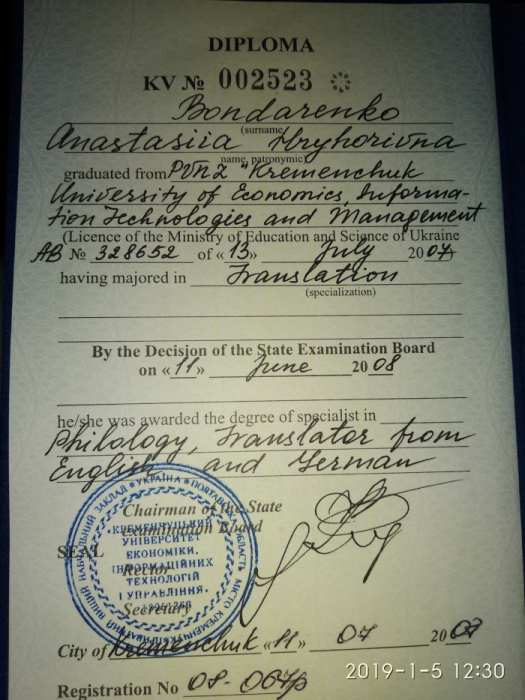 DIPLOMA
KV № 002523
Bondarenko
(surname)
Anastasiia Hryhorivna
name, patronymic)
graduated from PVNZ "Kremenchuk
University of Economics, Informa-
tion Technologies and Management
(Licence of the Ministry of Education and Science of Ukraine
AB № 328652 of «13» July 2007)
having majored in Translation
(specialization)
By the Decision of the State Examination Board
on «11» June 2008
he/she was awarded the degree of specialist in
Philology, Translator from
English and German
Chairman of the State
Examination Board
SEAL
Rector
Secretary
УКРАЇНА
КРЕМЕНЧУЦЬКИЙ
УНІВЕРСИТЕТ
ЕКОНОМІКИ,
ІНФОРМАЦІЙНИХ
ТЕХНОЛОГІЙ
І УПРАВЛІННЯ
City of Kremenchuk «11» 07 20
Registration No 08-067р
2019-1-5 12:30